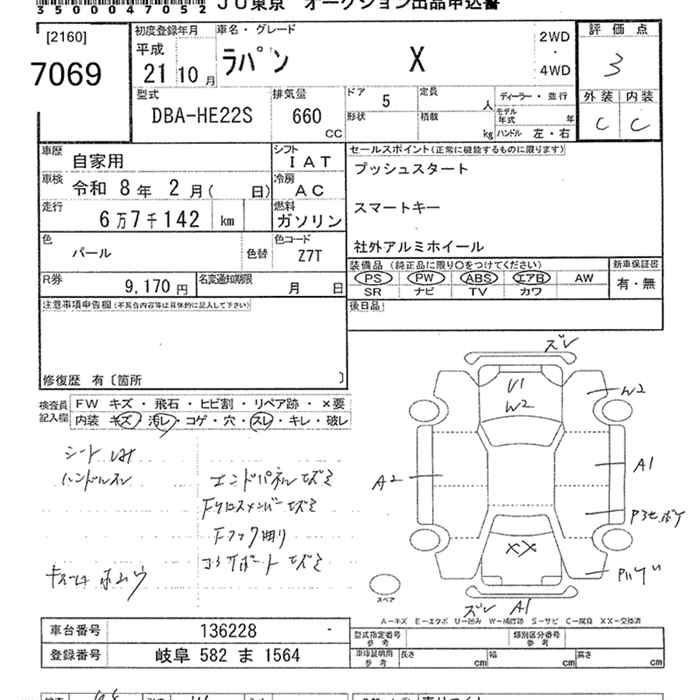 35000047052 JU東京 オークション出品申込書
[2160]
7069
初度登録年月
平成
21 年 10 月
車名・グレード
ラパン X
2WD
・
4WD
評価点
3
外装 内装
C C
型式
DBA-HE22S
排気量
660 CC
ドア 5
定員 人
形状
積載 kg
ディーラー・並行
モデル年式 年
ハンドル 左・右
車歴 自家用
シフト IAT
車検 令和 8 年 2 月( 日)
冷房 AC
走行 6万7千142 km
燃料 ガソリン
色 パール 色替
色コード Z7T
R券 9,170 円
名変通知期限 月 日
セールスポイント(正常に機能するものに限ります)
プッシュスタート
スマートキー
社外アルミホイール
装備品 (純正品に限り○をつけてください)
PS PW ABS エアB AW
SR ナビ TV カワ
新車保証書
有・無
後日品
注意事項申告欄(不具合内容等は具体的に記入して下さい)
修復歴 有〔箇所 〕
検査員記入欄
FW キズ・飛石・ヒビ割・リペア跡・×要
内装 キズ・汚レ・コゲ・穴・スレ・キレ・破レ
シート
ハンドルスレ
エンドパネル
Fクロスメンバー
Fフック曲り
コアサポート
ズレ
U1
W2
W2
A2
A1
XX
ズレ A1
スペア
A-キズ E-エクボ U-凹み W-補修跡 S-サビ C-腐食 XX-交換済
車台番号 136228 -
登録番号 岐阜 582 ま 1564
型式指定番号 参考
類別区分番号 参考
車庫証明用 参考
長さ cm
幅 cm
高さ cm